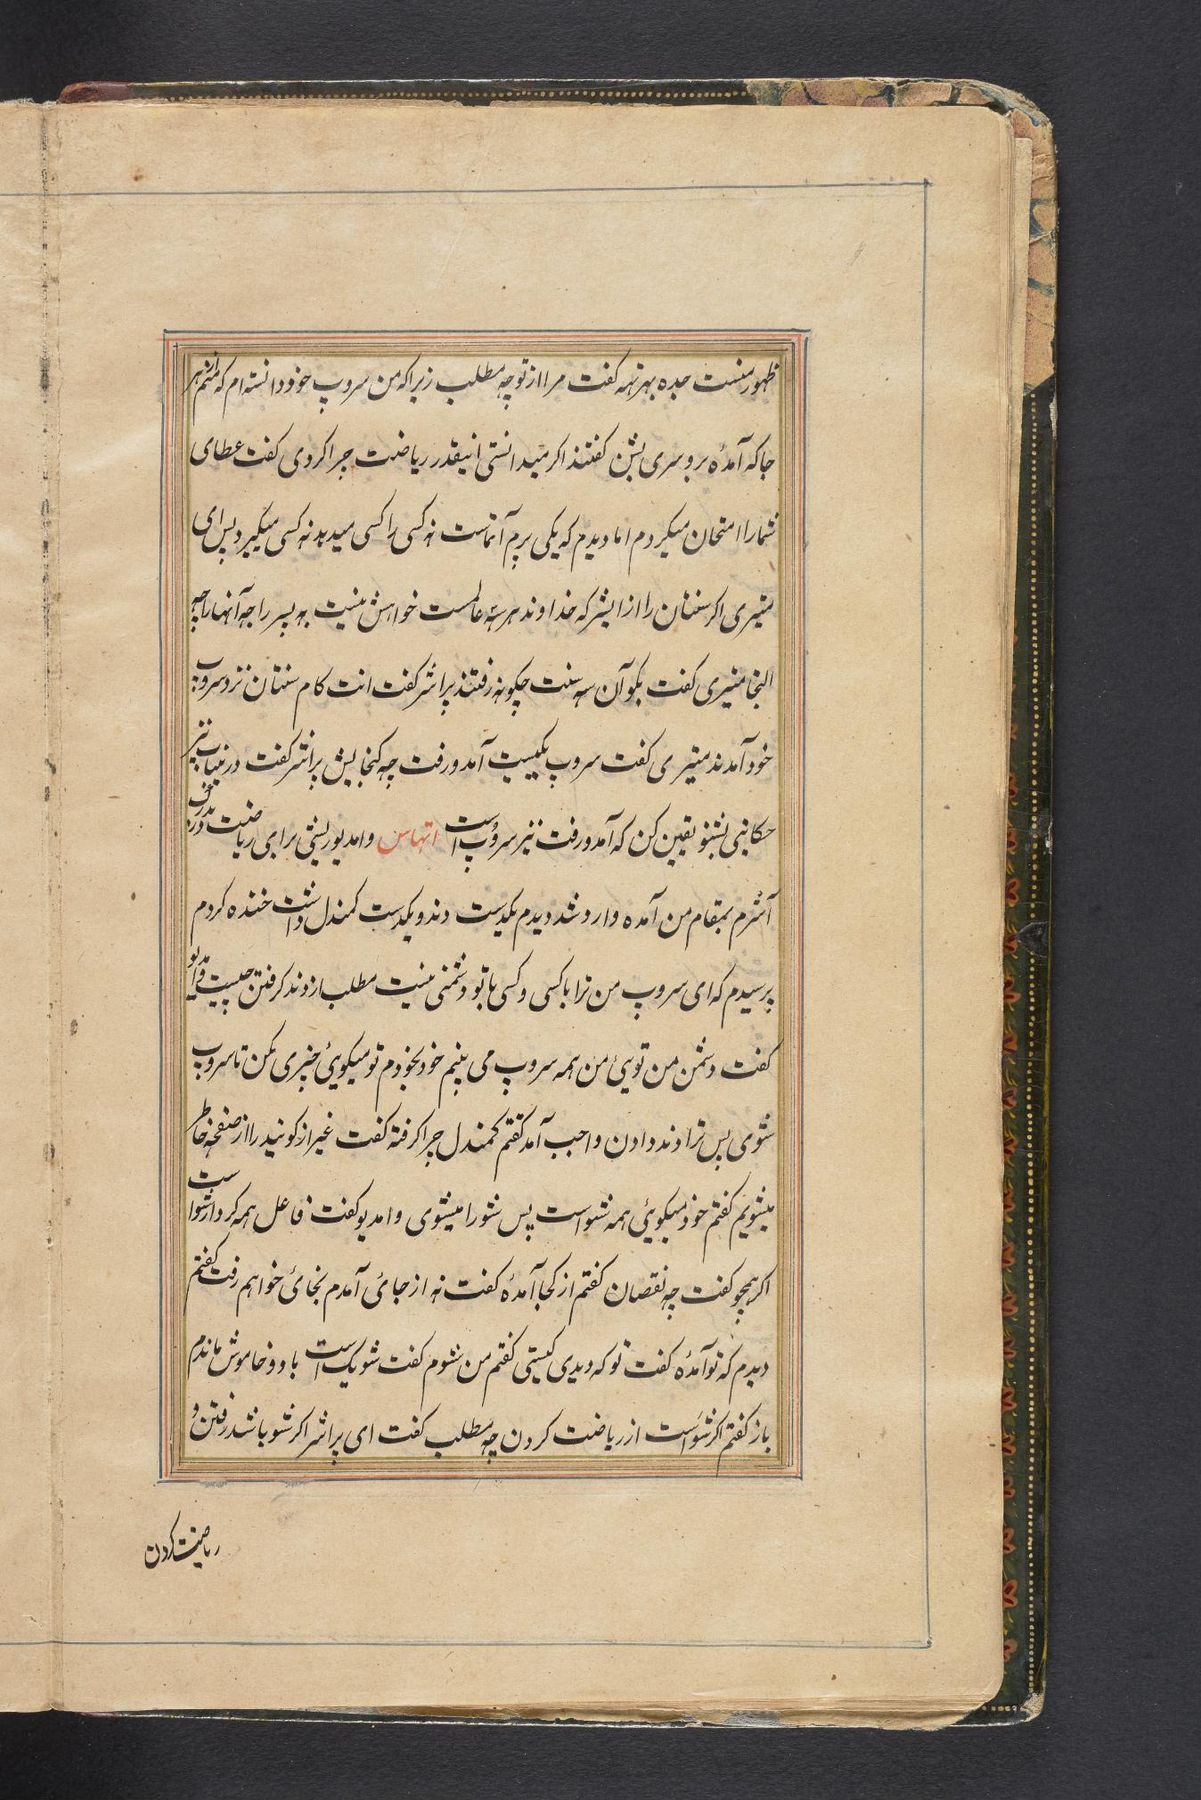 ظهور منست جده بهرنهه گفت مرا از تو چه مطلب زیرا که من سروپ خود دانسته ام که منم از هر
جا که آمدهٔ برو سری بشن گفتند اگر میدانستی اینقدر ریاضت چرا کردی گفت عطای
شما را امتحان میکردم اما دیدم که یکی برم آتماست نه کسی را کسی میدهد نه کسی میگیرد پس ای
میتیری اگر سنتان را از ایشر که خداوند هر سه عالمست خواهش نیست به پسر راجه آنها را چه
التجا میتیری گفت بگو آن سه سنت چگونه رفتند پراشر گفت انت کام سنتان نزد سروپ
خود آمدند میتیری گفت سروپ یکیست آمد و رفت چه گنجایش پراشر گفت درینباب نیز
حکایتی بشنو یقین کن که آمد و رفت نیز سروپ است اتهاس وامدیو ریشی برای ریاضت در
آشرم بمقام من آمده وارد شد دیدم یکدست دند و یکدست کمندل داشت خنده کردم
پرسیدم که ای سروپ من ترا با کسی و کسی با تو دشمنی نیست مطلب از دند گرفتن چیست وامدیو
گفت دشمن من تویی من همه سروپ می بینم خود بخودم تو میگویی چیزی بکن تا سروپ
شوی پس ترا دند دادن واجب آمد گفتم کمندل چرا گرفته گفت غیر از گوبند را از صفحه خاطر
میشویم گفتم خود میگویی همه شو است پس شو را میشوی وامدیو گفت فاعل همه کردار شوا ست
اگر همچو گفت چه نقصان گفتم از کجا آمدهٔ گفت نه از جائی آمدم نجائی خواهم رفت گفتم
دیدم که تو آمدهٔ گفت تو که دیدی کیستی گفتم من شوم گفت شو یک است با و و خاموش ماندم
باز گفتم اگر شو است از ریاضت کردن چه مطلب گفت ای پراشر اگر شو باشد رفتن و
ریاضت کردن